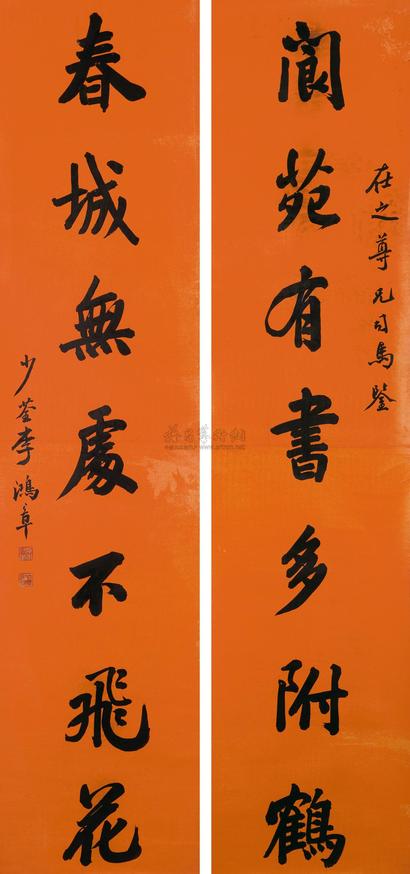 在之尊兄司馬鑒
閬苑有書多附鶴
春城無處不飛花
少荃李鴻章